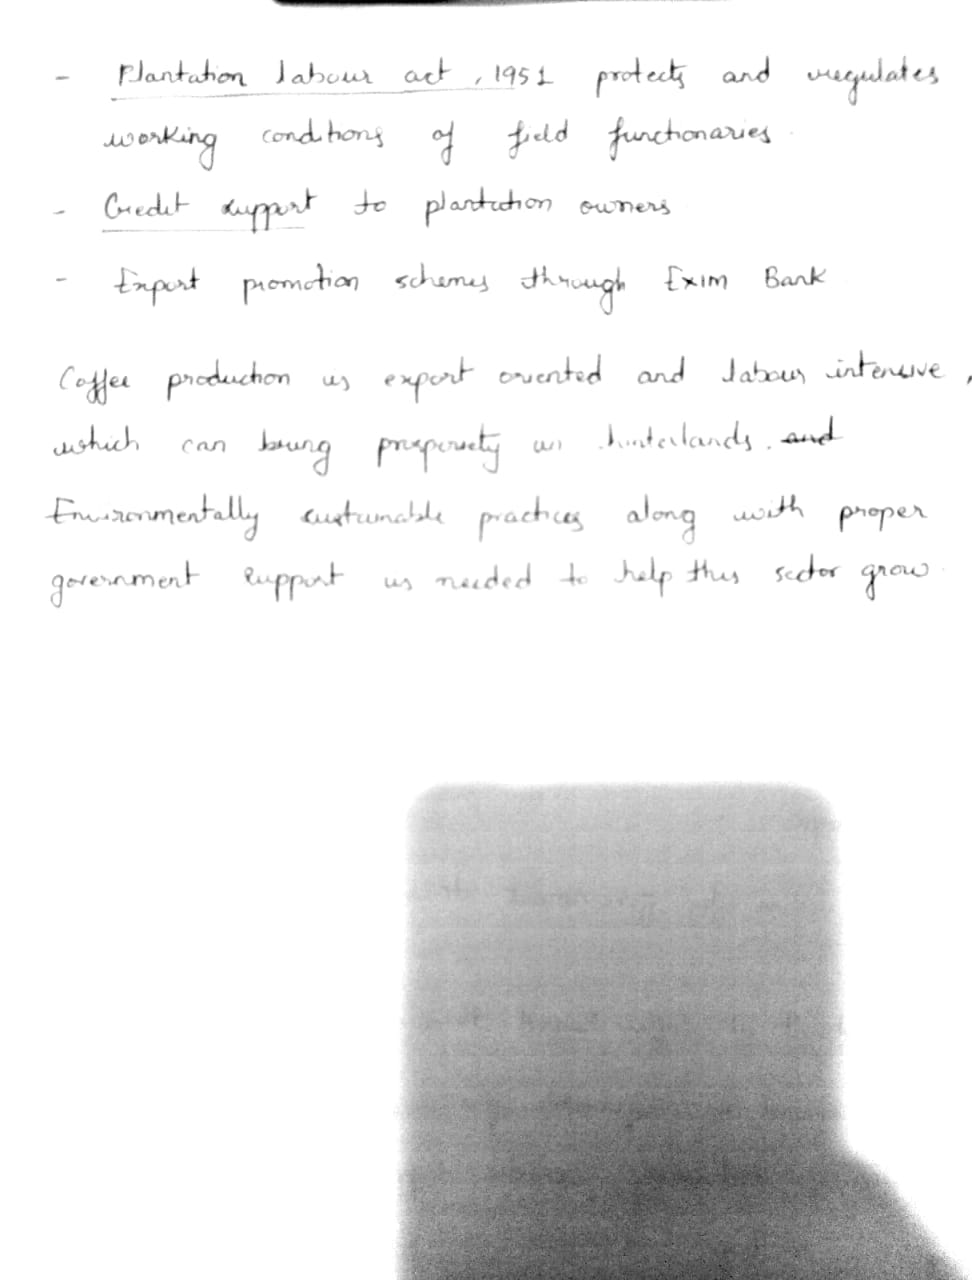 - Plantation labour act, 1951 protects and regulates
working conditions of field functionaries.
- Credit support to plantation owners
- Export promotion schemes through Exim Bank
Coffee production is export oriented and labour intensive,
which can bring prosperity in hinterlands. and
Environmentally sustainable practices along with proper
government support is needed to help this sector grow.